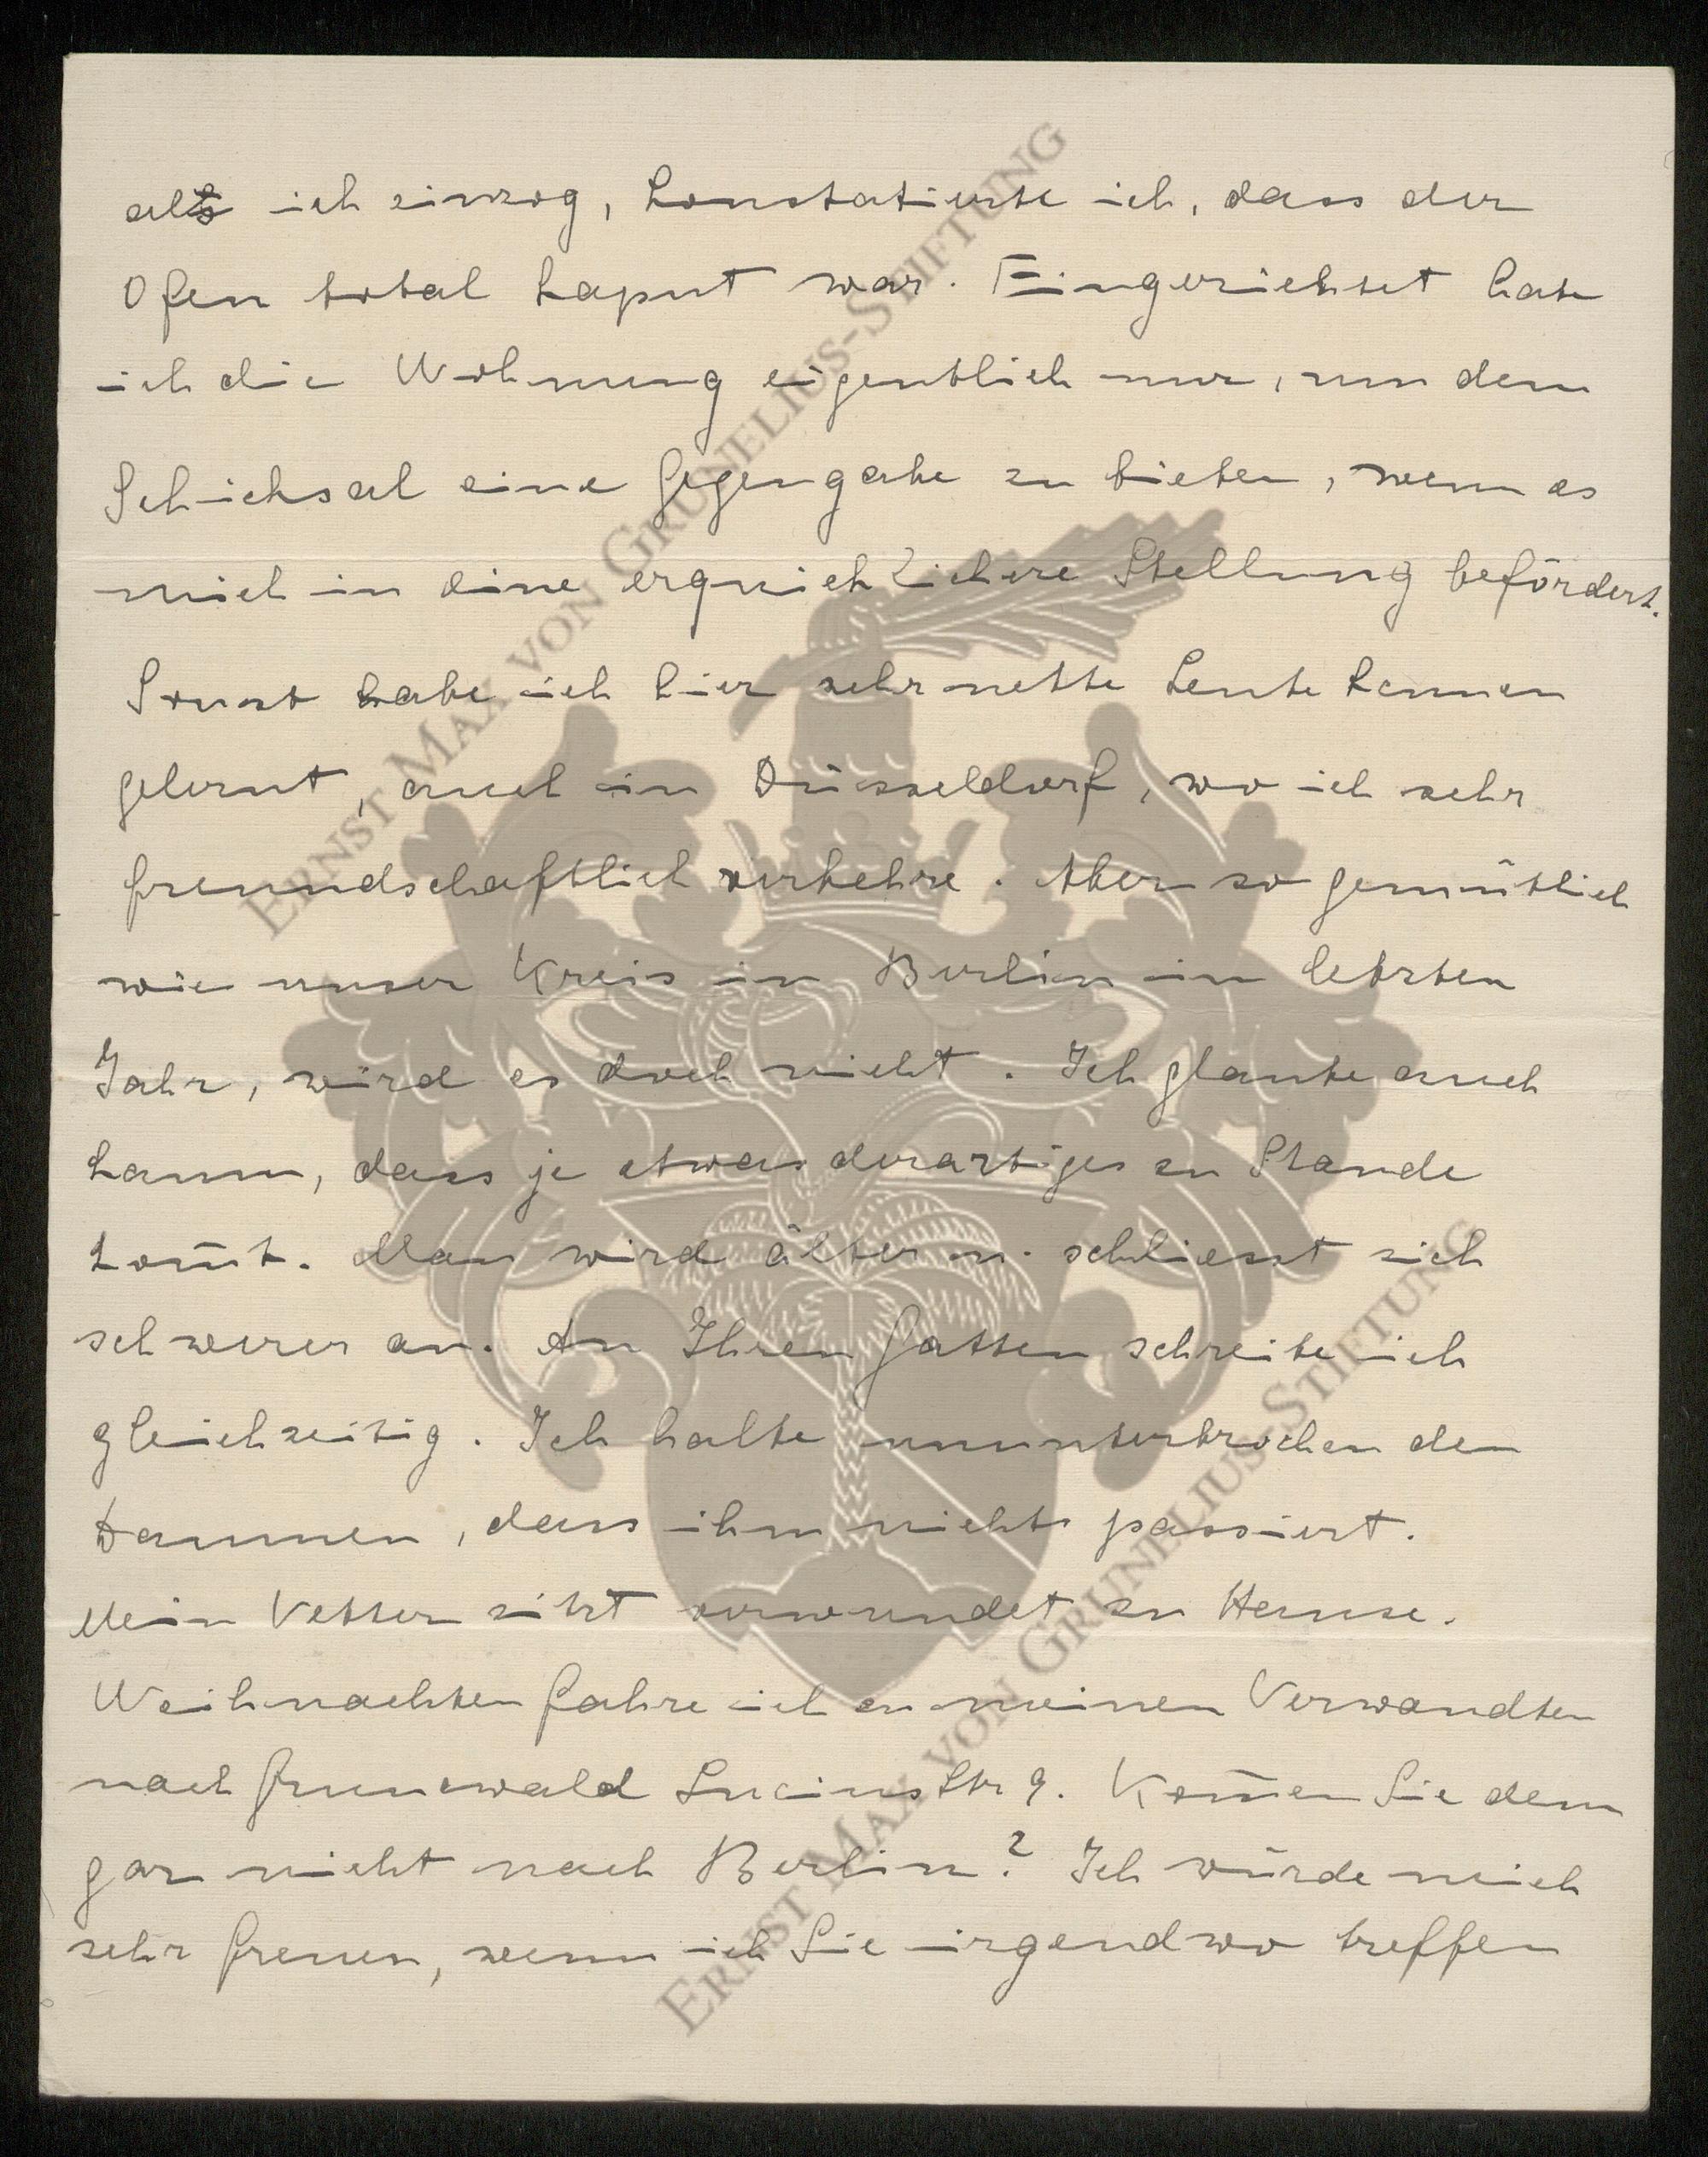 als ich einzog, konstatierte ich, dass der
Ofen total kaput war. Eingerichtet habe
ich die Wohnung eigentlich nur, um dem
Schicksal eine Gegengabe zu bieten, wenn es
mich in eine erquicklichere Stellung befördert.
Sonst habe ich hier sehr nette Leute kennen
gelernt, auch in Düsseldorf, wo ich sehr
freundschaftlich verkehre. Aber so gemütlich
wie unser Kreis in Berlin im letzten
Jahr, wird es doch nicht. Ich glaube auch
kaum, dass je etwas derartiges zu Stande
kom̅t. Man wird älter u. schliesst sich
schwerer an. An Ihren Gatten schreibe ich
gleichzeitig. Ich halte ununterbrochen den
Daumen, dass ihm nichts passiert.
Mein Vetter sitzt verwundet zu Hause.
Weihnachten fahre ich zu meinen Verwandten
nach Grunewald Luciusstr 9. Kom̅en Sie denn
gar nicht nach Berlin? Ich würde mich
sehr freuen, wenn ich Sie irgendwo treffen
ERNST MAX VON GRUNELIUS-STIFTUNG
ERNST MAX VON GRUNELIUS-STIFTUNG